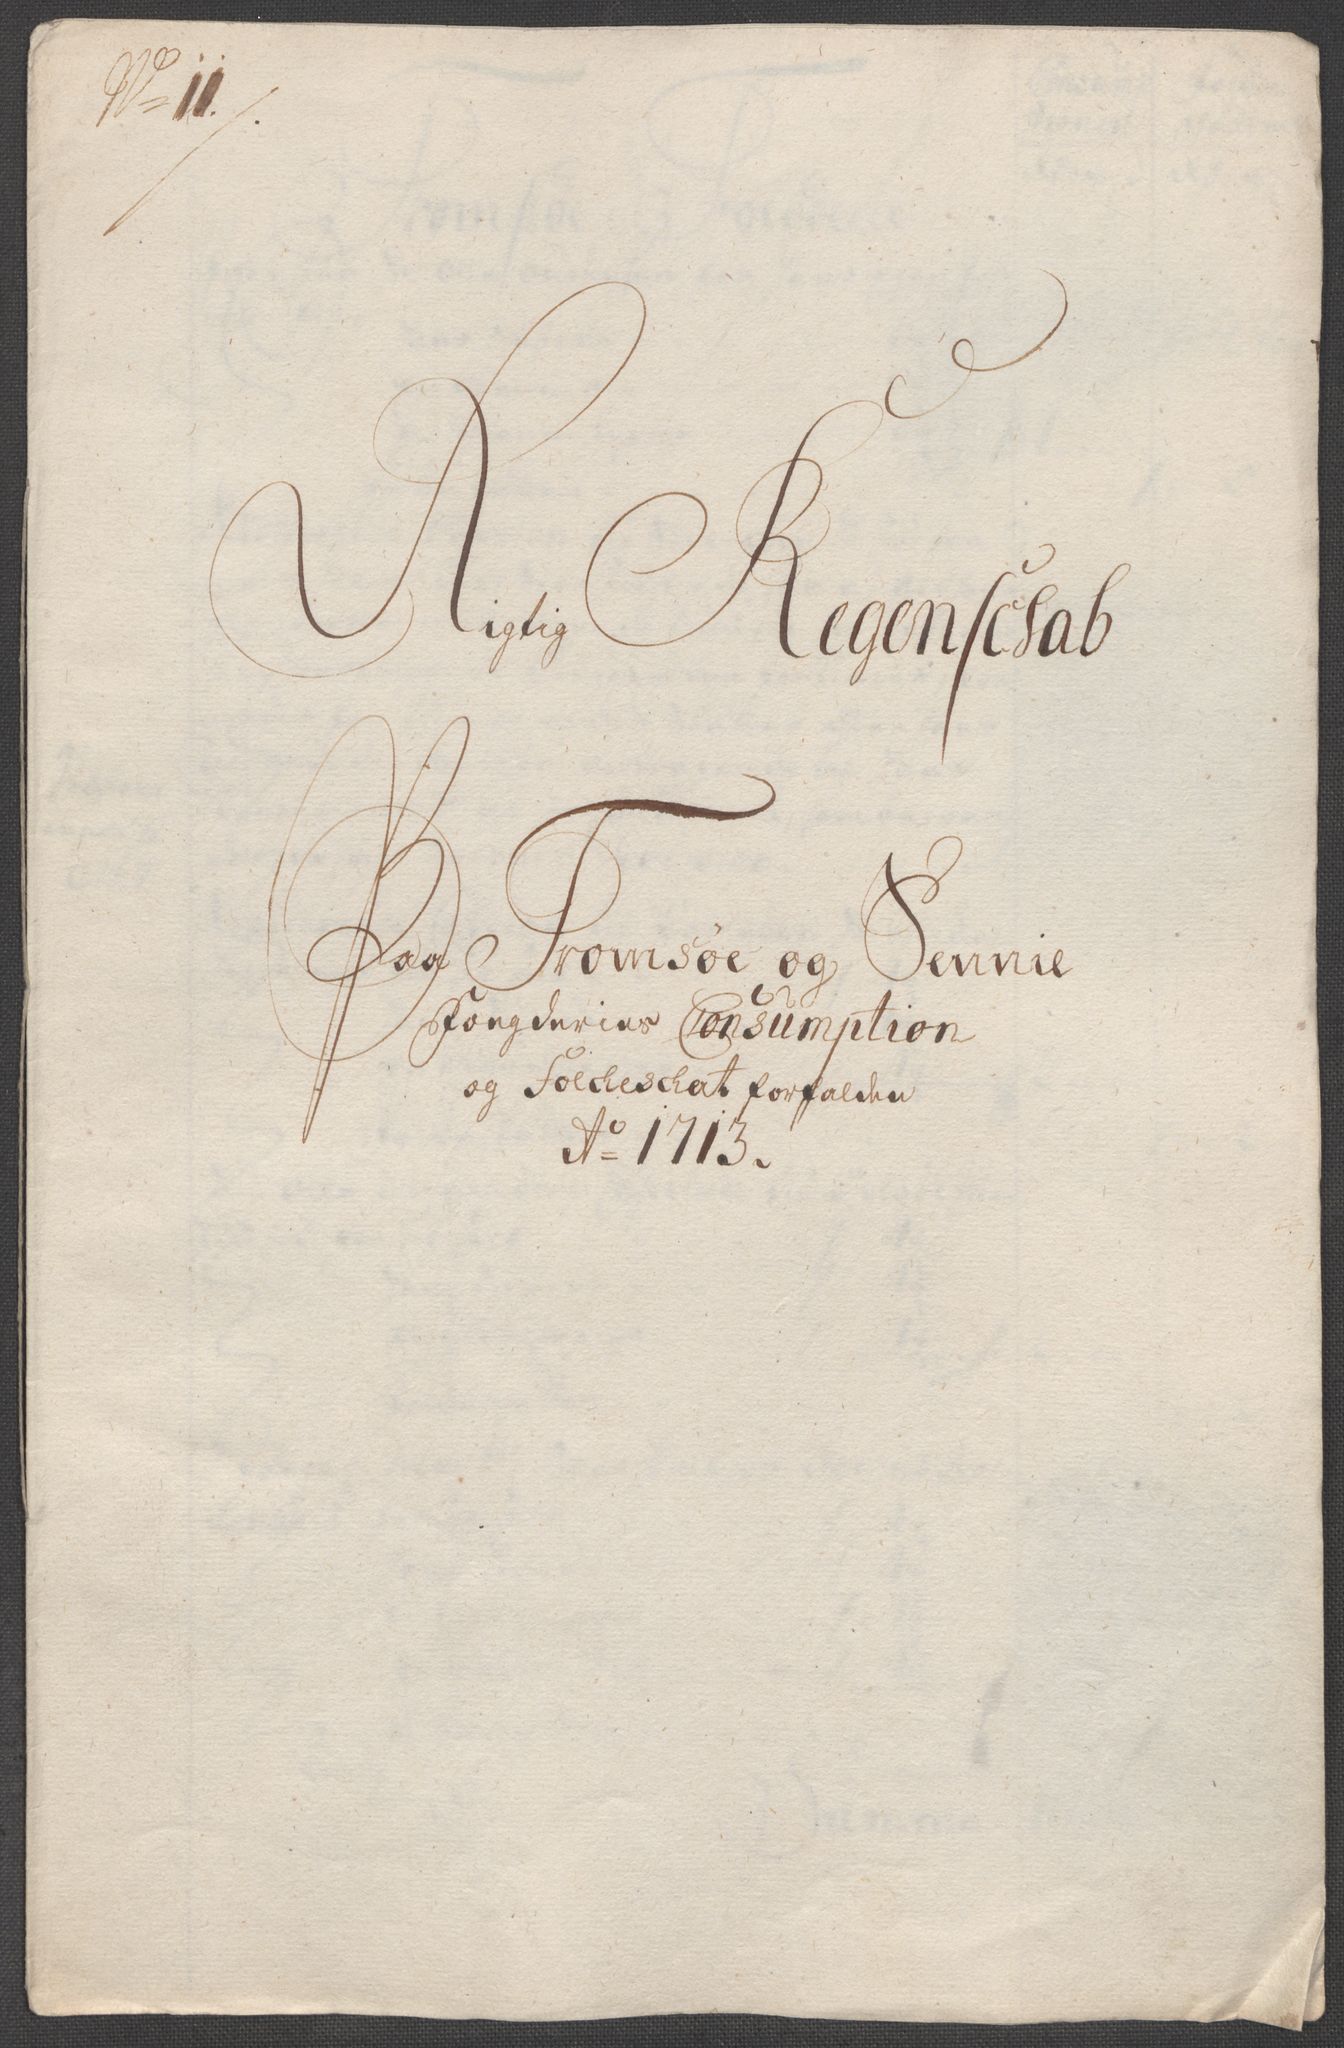 No 11.
Rigtig Regenschab
Paa Tromsøe og Sennie
Foegderies Consumption
og Folcheschat forfalden
Ao 1713.